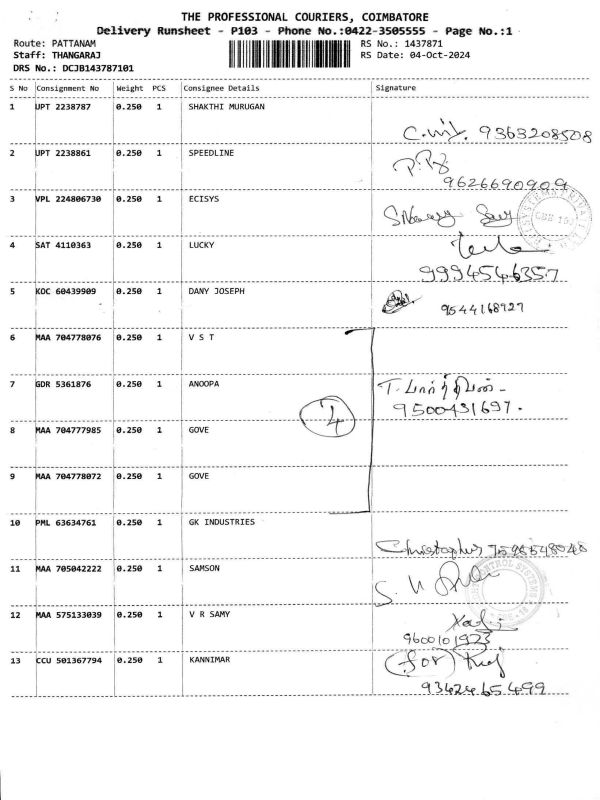 THE PROFESSIONAL COURIERS, COIMBATORE
Delivery Runsheet - P103 - Phone No.:0422-3505555 - Page No.:1
Route: PATTANAM RS No.: 1437871
Staff: THANGARAJ RS Date: 04-Oct-2024
DRS No.: DCJB143787101
S No Consignment No Weight PCS Consignee Details Signature
1 UPT 2238787 0.250 1 SHAKTHI MURUGAN
9363208508
2 UPT 2238861 0.250 1 SPEEDLINE
9626690909
3 VPL 224806730 0.250 1 ECISYS
4 SAT 4110363 0.250 1 LUCKY
9994546357
5 KOC 60439909 0.250 1 DANY JOSEPH
9544168927
6 MAA 704778076 0.250 1 V S T
7 GDR 5361876 0.250 1 ANOOPA
9500431697.
4
8 MAA 704777985 0.250 1 GOVE
9 MAA 704778072 0.250 1 GOVE
10 PML 63634761 0.250 1 GK INDUSTRIES
Christopher
11 MAA 705042222 0.250 1 SAMSON
12 MAA 575133039 0.250 1 V R SAMY
9600101923
13 CCU 501367794 0.250 1 KANNIMAR
(for)
9342465499